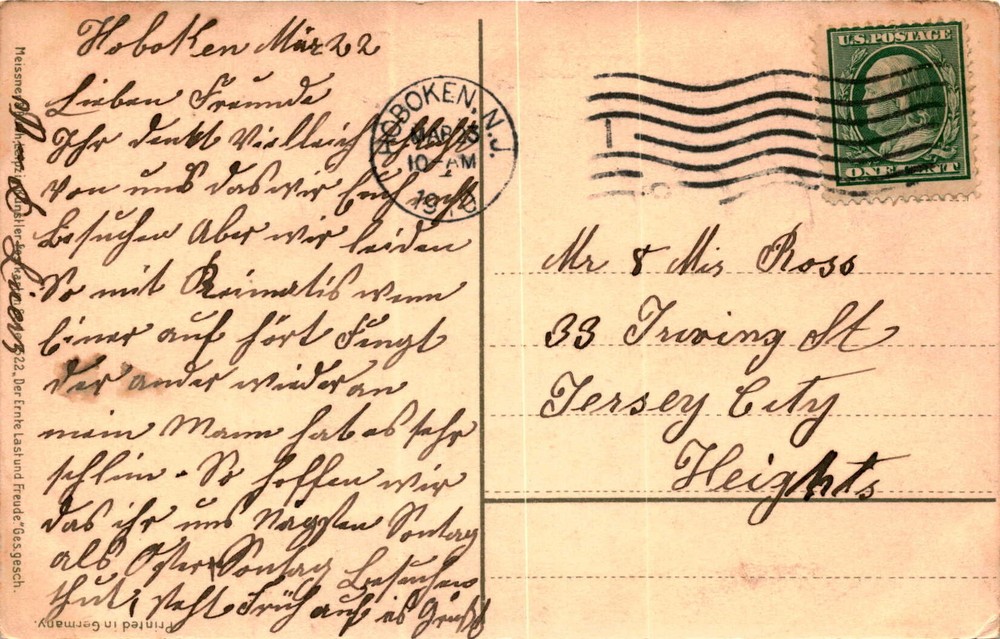 Hoboken März 22
Lieben Freunde
Ihr denkt Vielleich
von uns das wir Euch nicht
besuchen Aber wir leiden
So mit Reimatis wenn
Einer auf hört Fengt
der ander wieder an
mein Mann hat es sehr
schlim - So hoffen wir
das ihr uns Nägsten Sontag
als Oster Sontag besuchen
thut, steht Früh auf es Grüsst
HOBOKEN, N.J.
MAR 23
10-AM
1910
U.S. POSTAGE
ONE CENT
Mr & Mis Ross
33 Irving St
Jersey City
Heights
Meissner
522. „Der Ernte Last und Freude." Ges. gesch.
Printed in Germany.